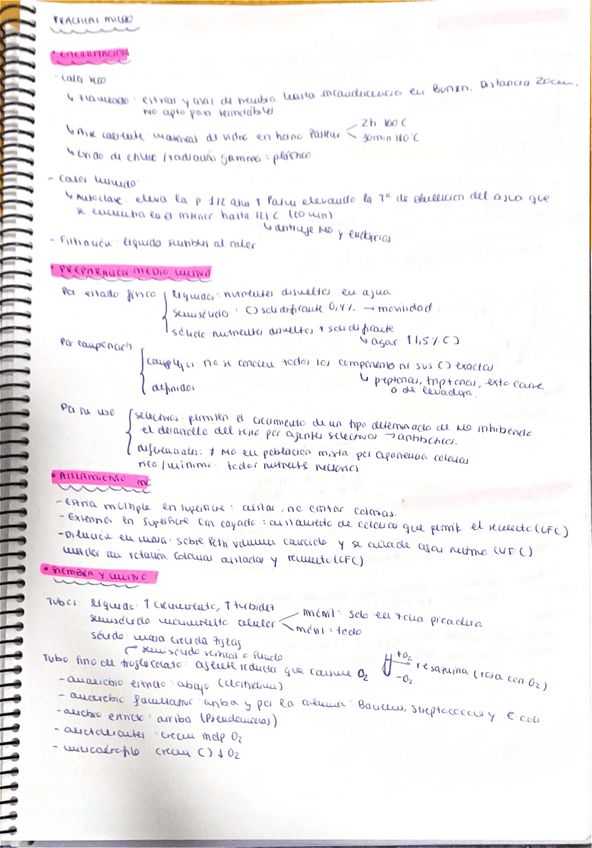 PRACTICAS MICRO
• ESTERILIZACIÓN
- Calor seco
↳ Flameado: estrias y asas de siembra hasta incandescencia en Bunsen. Distancia 20cm.
No apto para termolabiles
↳ Aire caliente: material de vidrio en horno Pasteur < 2h 160°C
30min 180°C
↳ Oxido de / radiación gamma: plástico
- Calor humedo:
↳ Autoclave: eleva la p 1/2 atm ↑ Patm elevando la Tª de ebullición del agua que
se encuentra en el interior hasta 121°C (20 min)
↳ destruye MO y esporas
- Filtración: liquido sensibles al calor
• PREPARACIÓN MEDIO CULTIVO
Por estado físico
liquidos: nutrientes disueltos en agua
semisólido: () solidificante 0,4% → movilidad
sólido nutrientes disueltos + solidificante
↳ agar (1,5% C)
Por composición
complejos no se conocen todos los componentes ni sus () exactas
↳ peptonas, triptonas, exto carne
o de levadura.
definidos
Por su uso
selectivos: permiten el crecimiento de un tipo determinado de MO inhibiendo
el desarrollo del resto por agentes selectivos → antibióticos.
diferenciales: ≠ MO en población mixta por apariencia colonias
rico / mínimo: todos nutriente necesarios
• AISLAMIENTO MO
- Estria múltiple en superficie: aislar, no contar colonias.
- Extension en superficie con cayado: aislamiento de colonias que permite el recuento (UFC)
- Dilución en masa: sobre Petri volumen conocido y se añade agar nutritivo (UFC)
colonias aisladas y recuento (UFC)
• SIEMBRA Y CULTIVO
Tubos
liquido: ↑ crecimiento, ↑ turbidez
semisólido: movimiento celular < inmóvil: solo en zona picadura
móvil: todo
sólido: masa crecida
↱ semisólido vertical o fluido
Tubo fino de tioglicolato: agente reductor que consume O₂
+O₂
-O₂
resazurina (rosa con O₂)
- anaerobio estricto: abajo (clostridium)
- anaerobio facultativo: arriba y por la columna: Bacillus, Streptococcus y E coli
- aerobio estricto: arriba (Pseudomonas)
- aerotolerantes: crecen O₂
- microaerofilo crecen () ↓ O₂